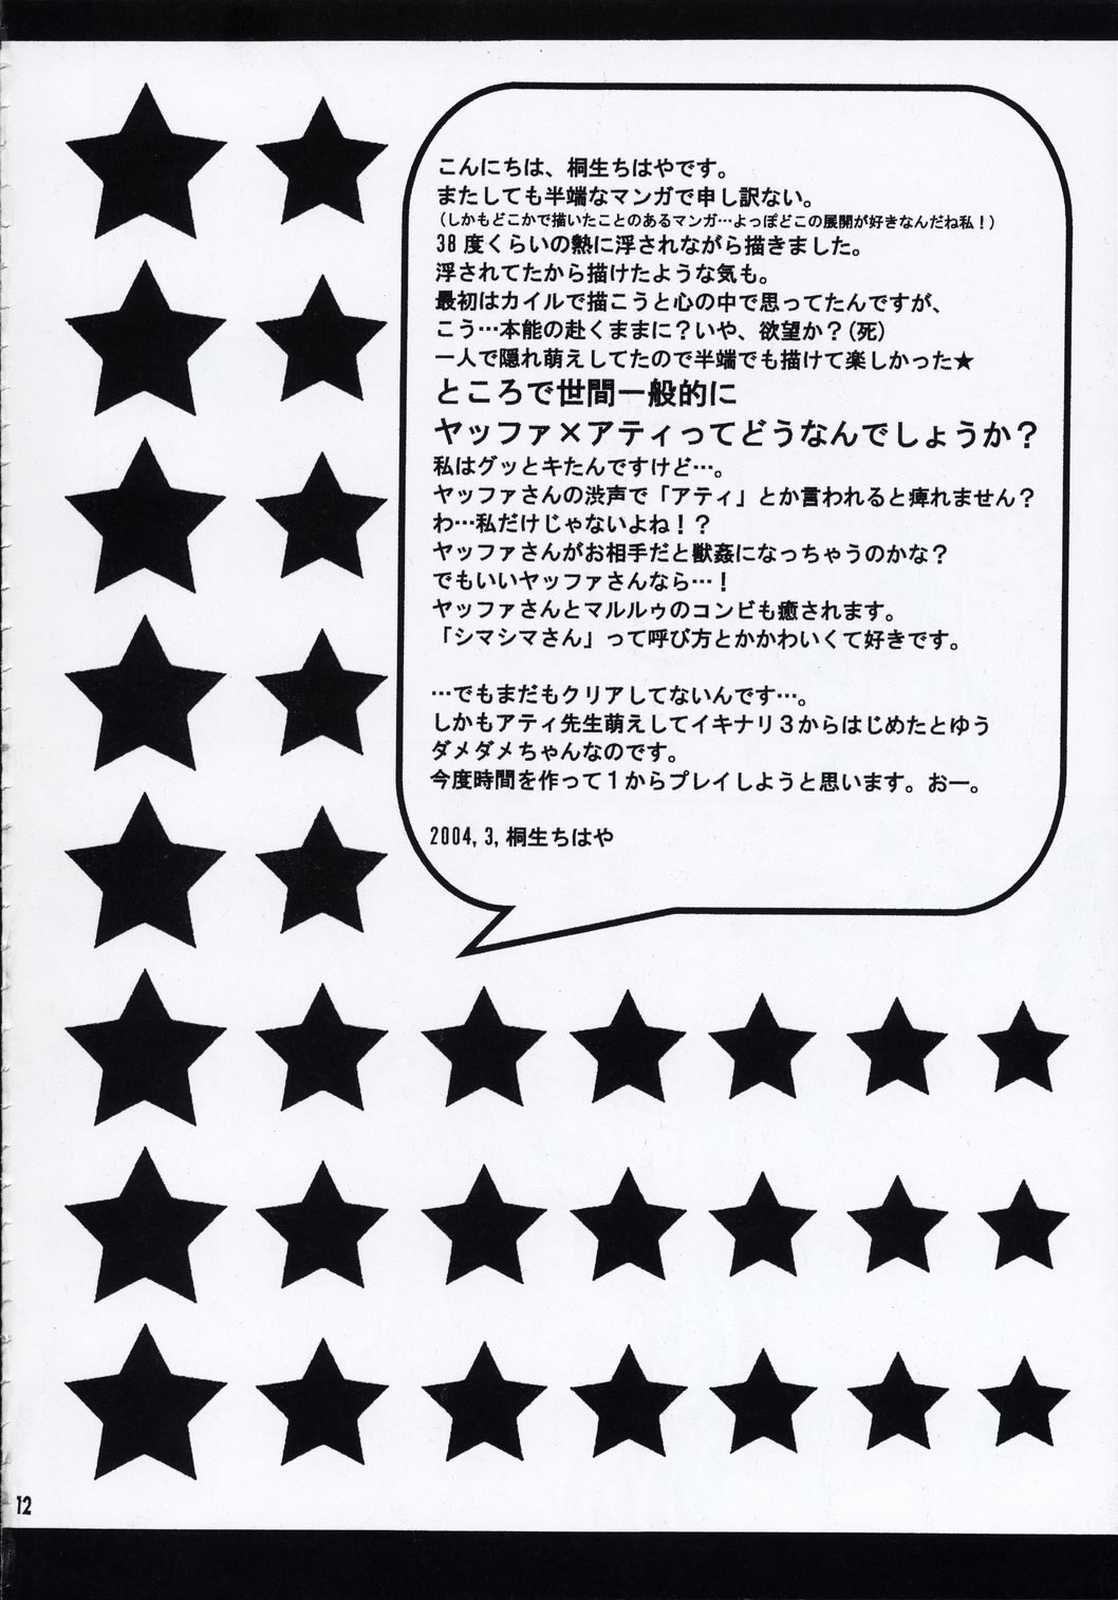 こんにちは、桐生ちはやです。
またしても半端なマンガで申し訳ない。
(しかもどこかで描いたことのあるマンガ…よっぽどこの展開が好きなんだね私!)
38度くらいの熱に浮されながら描きました。
浮されてたから描けたような気も。
最初はカイルで描こうと心の中で思ってたんですが、
こう…本能の赴くままに?いや、欲望か?(死)
一人で隠れ萌えしてたので半端でも描けて楽しかった★
ところで世間一般的に
ヤッファ×アティってどうなんでしょうか?
私はグッとキたんですけど…。
ヤッファさんの渋声で「アティ」とか言われると痺れません?
わ…私だけじゃないよね!?
ヤッファさんがお相手だと獣姦になっちゃうのかな?
でもいいヤッファさんなら…!
ヤッファさんとマルルゥのコンビも癒されます。
「シマシマさん」って呼び方とかかわいくて好きです。
…でもまだもクリアしてないんです…。
しかもアティ先生萌えしてイキナリ3からはじめたとゆう
ダメダメちゃんなのです。
今度時間を作って1からプレイしようと思います。おー。
2004,3,桐生ちはや
12